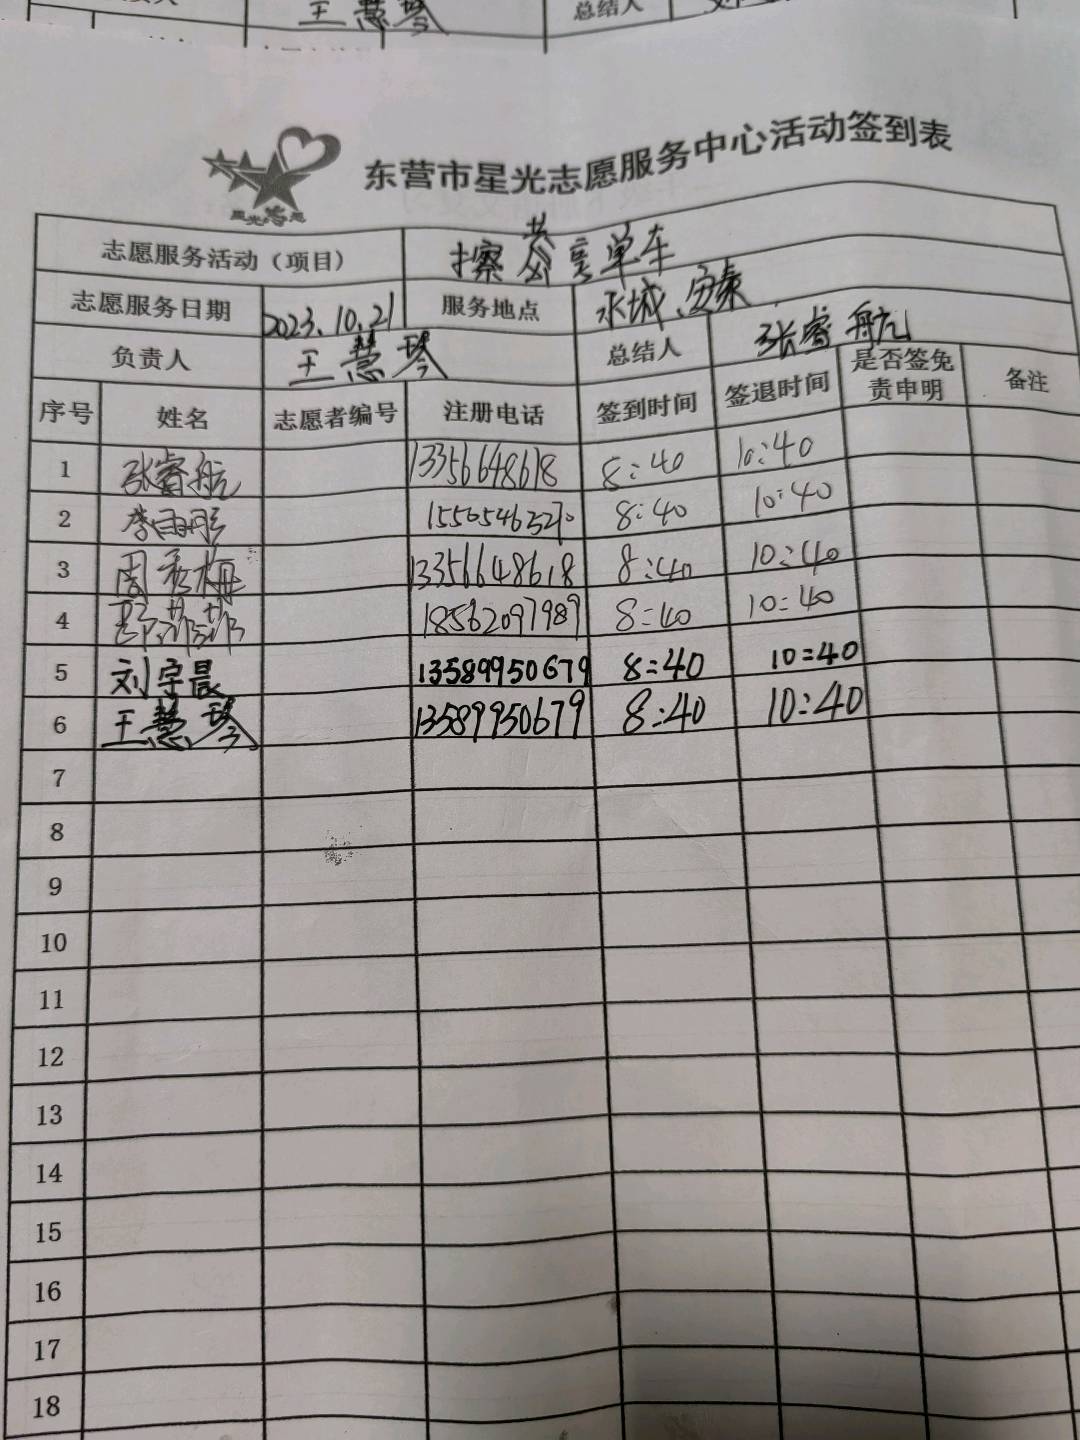 王慧琴 总结人
东营市星光志愿服务中心活动签到表
星光志愿
志愿服务活动（项目） 擦共享单车
志愿服务日期 2023.10.21 服务地点 水城.安泰
负责人 王慧琴 总结人 张睿航
序号 姓名 志愿者编号 注册电话 签到时间 签退时间 是否签免责申明 备注
1 张睿航 13356648618 8:40 10:40
2 李雨彤 8:40 10:40
3 周秀梅 13356648618 8:40 10:40
4 18562097989 8:40 10:40
5 刘宇晨 13589950679 8:40 10:40
6 王慧琴 13589950679 8:40 10:40
7
8
9
10
11
12
13
14
15
16
17
18